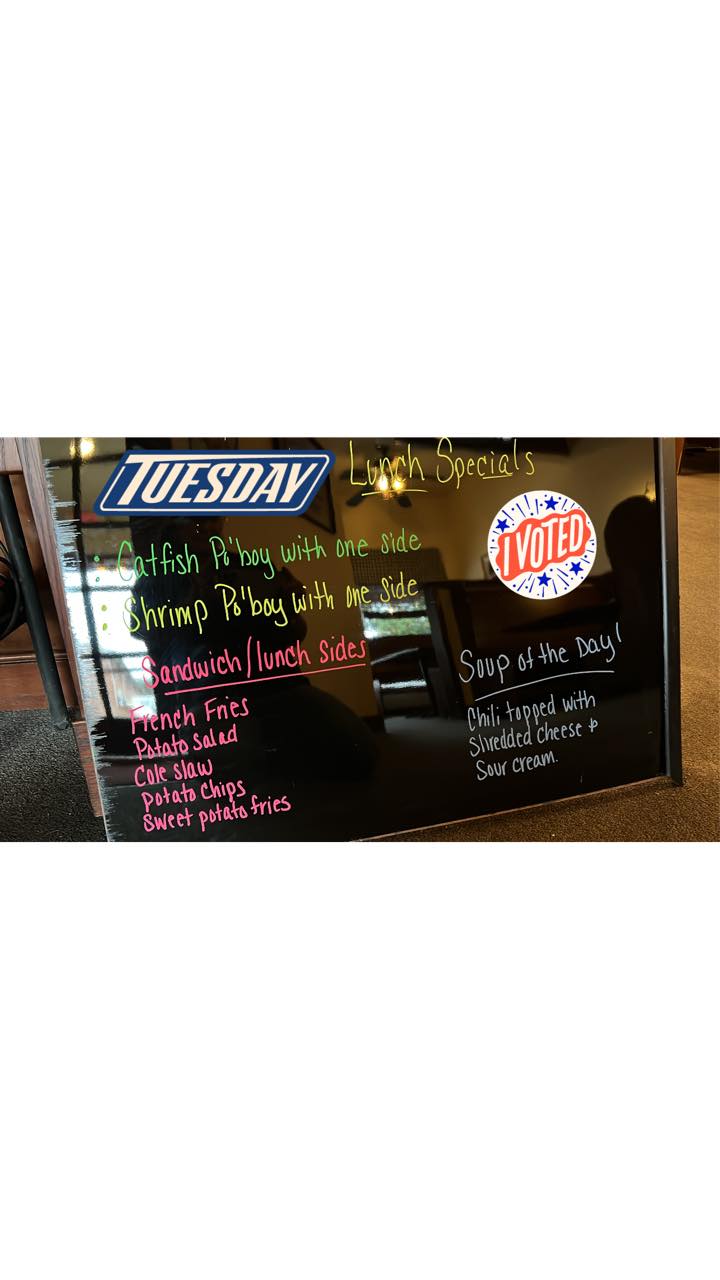 TUESDAY Lunch Specials
I VOTED
: Catfish Po'boy with one side
: Shrimp Po'boy with one side
Sandwich/lunch sides
French Fries
Potato salad
Cole slaw
potato chips
Sweet potato fries
Soup of the Day!
Chili topped with
Shredded cheese &
Sour cream.